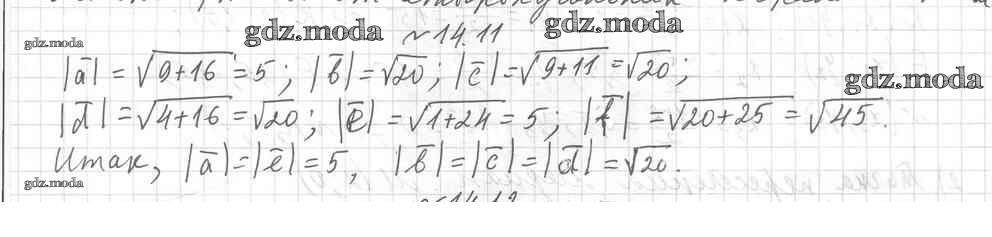 gdz.moda
gdz.moda
gdz.moda
№14.11
|a̅| = √(9+16) = 5; |b̅| = √20; |c̅| = √(9+11) = √20;
gdz.moda
|d̅| = √(4+16) = √20; |e̅| = √(1+24) = 5; |f̅| = √(20+25) = √45.
Итак, |a̅| = |e̅| = 5, |b̅| = |c̅| = |d̅| = √20.
gdz.moda